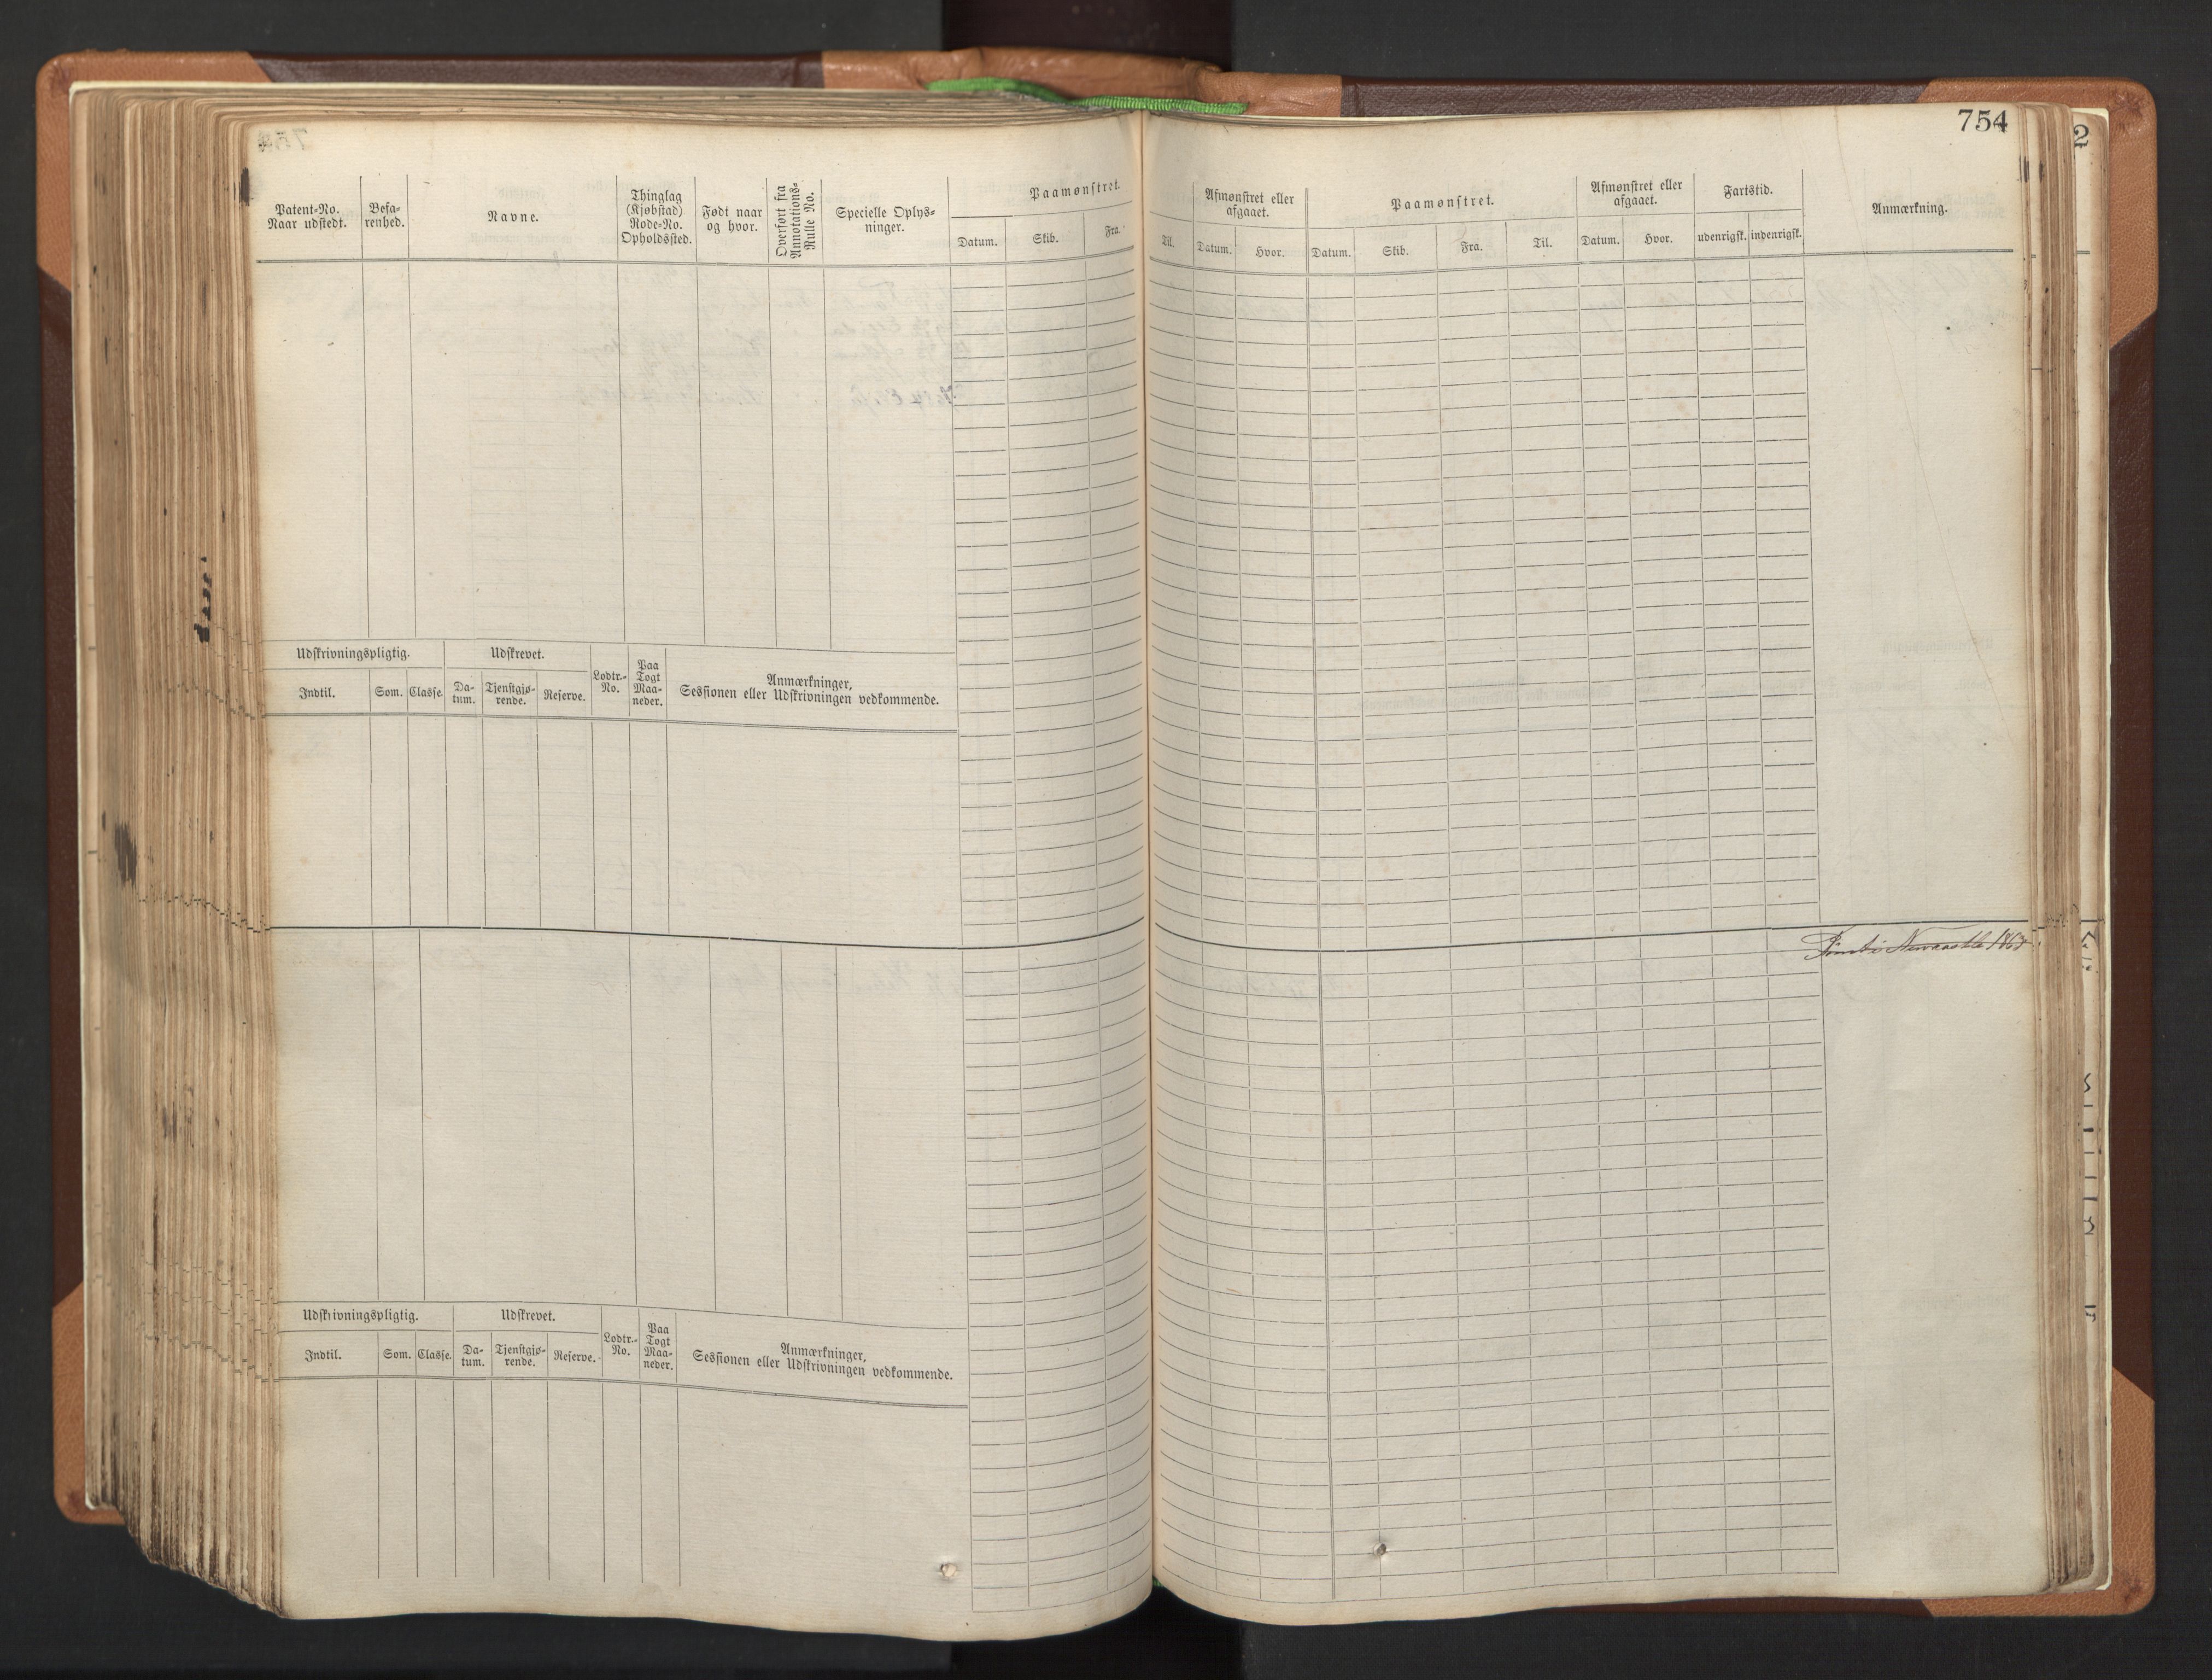 754
Patent=No.
Naar udstedt.
Befa=
renhed.
Navne.
Thinglag
(Kjøbstad)
Rode=No.
Opholdssted.
Født naar
og hvor.
Overført fra
Annotations=
Rulle No.
Specielle Oplys=
ninger.
Paamønstret.
Datum.
Skib.
Fra.
Til.
Afmønstret eller
afgaaet.
Datum.
Hvor.
Paamønstret.
Datum.
Skib.
Fra.
Til.
Afmønstret eller
afgaaet.
Datum.
Hvor.
Fartstid.
udenrigsk.
indenrigsk.
Anmærkning.
Udskrivningspligtig.
Indtil.
Som.
Classe.
Udskrevet.
Da=
tum.
Tjenstgjø=
rende.
Reserve.
Lodtr.=
No.
Paa
Togt
Maa=
neder.
Anmærkninger,
Sessionen eller Udskrivningen vedkommende.
i Newcastle
Udskrivningspligtig.
Indtil.
Som.
Classe.
Udskrevet.
Da=
tum.
Tjenstgjø=
rende.
Reserve.
Lodtr.=
No.
Paa
Togt
Maa=
neder.
Anmærkninger,
Sessionen eller Udskrivningen vedkommende.
2